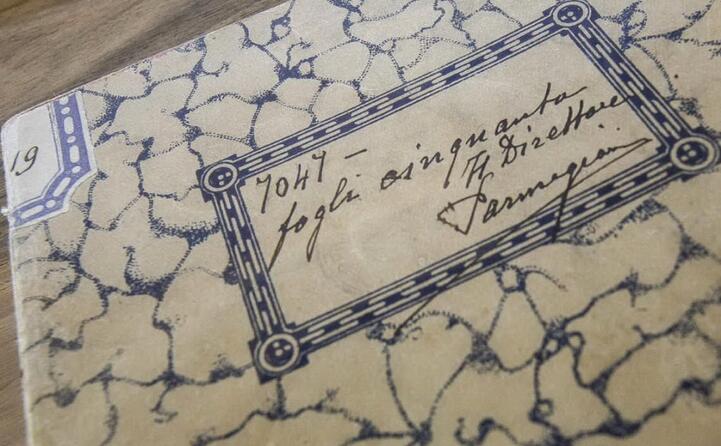 19
7047 –
fogli cinquanta
Il Direttore
Parmegiani